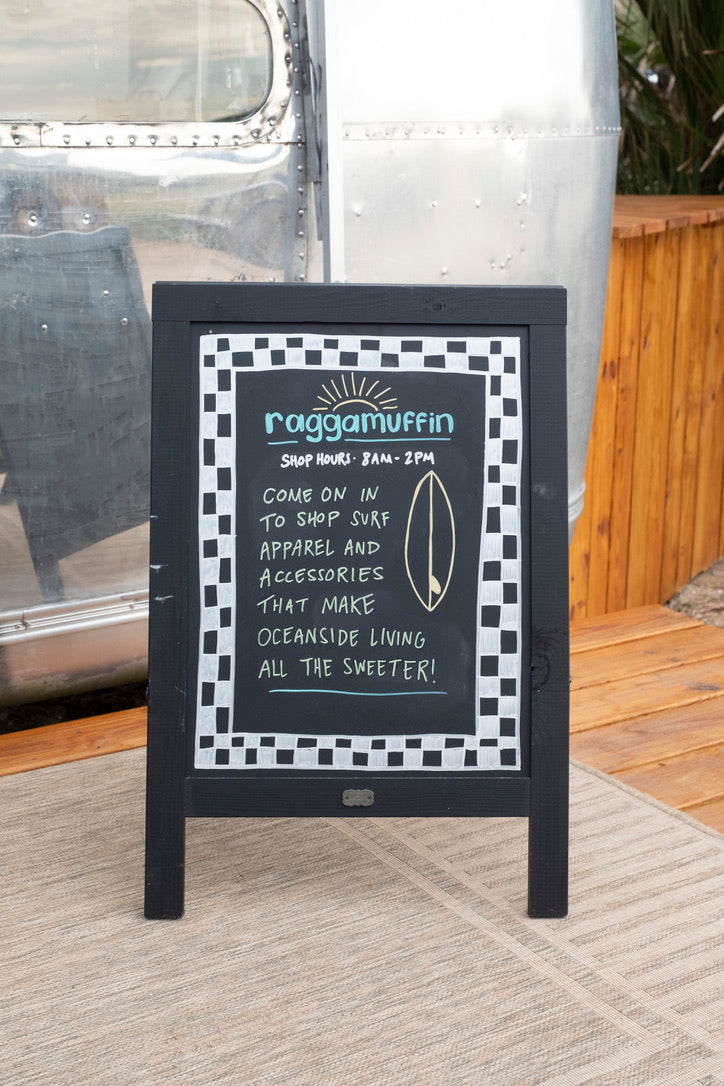 raggamuffin
SHOP HOURS · 8AM - 2PM
COME ON IN
TO SHOP SURF
APPAREL AND
ACCESSORIES
THAT MAKE
OCEANSIDE LIVING
ALL THE SWEETER!